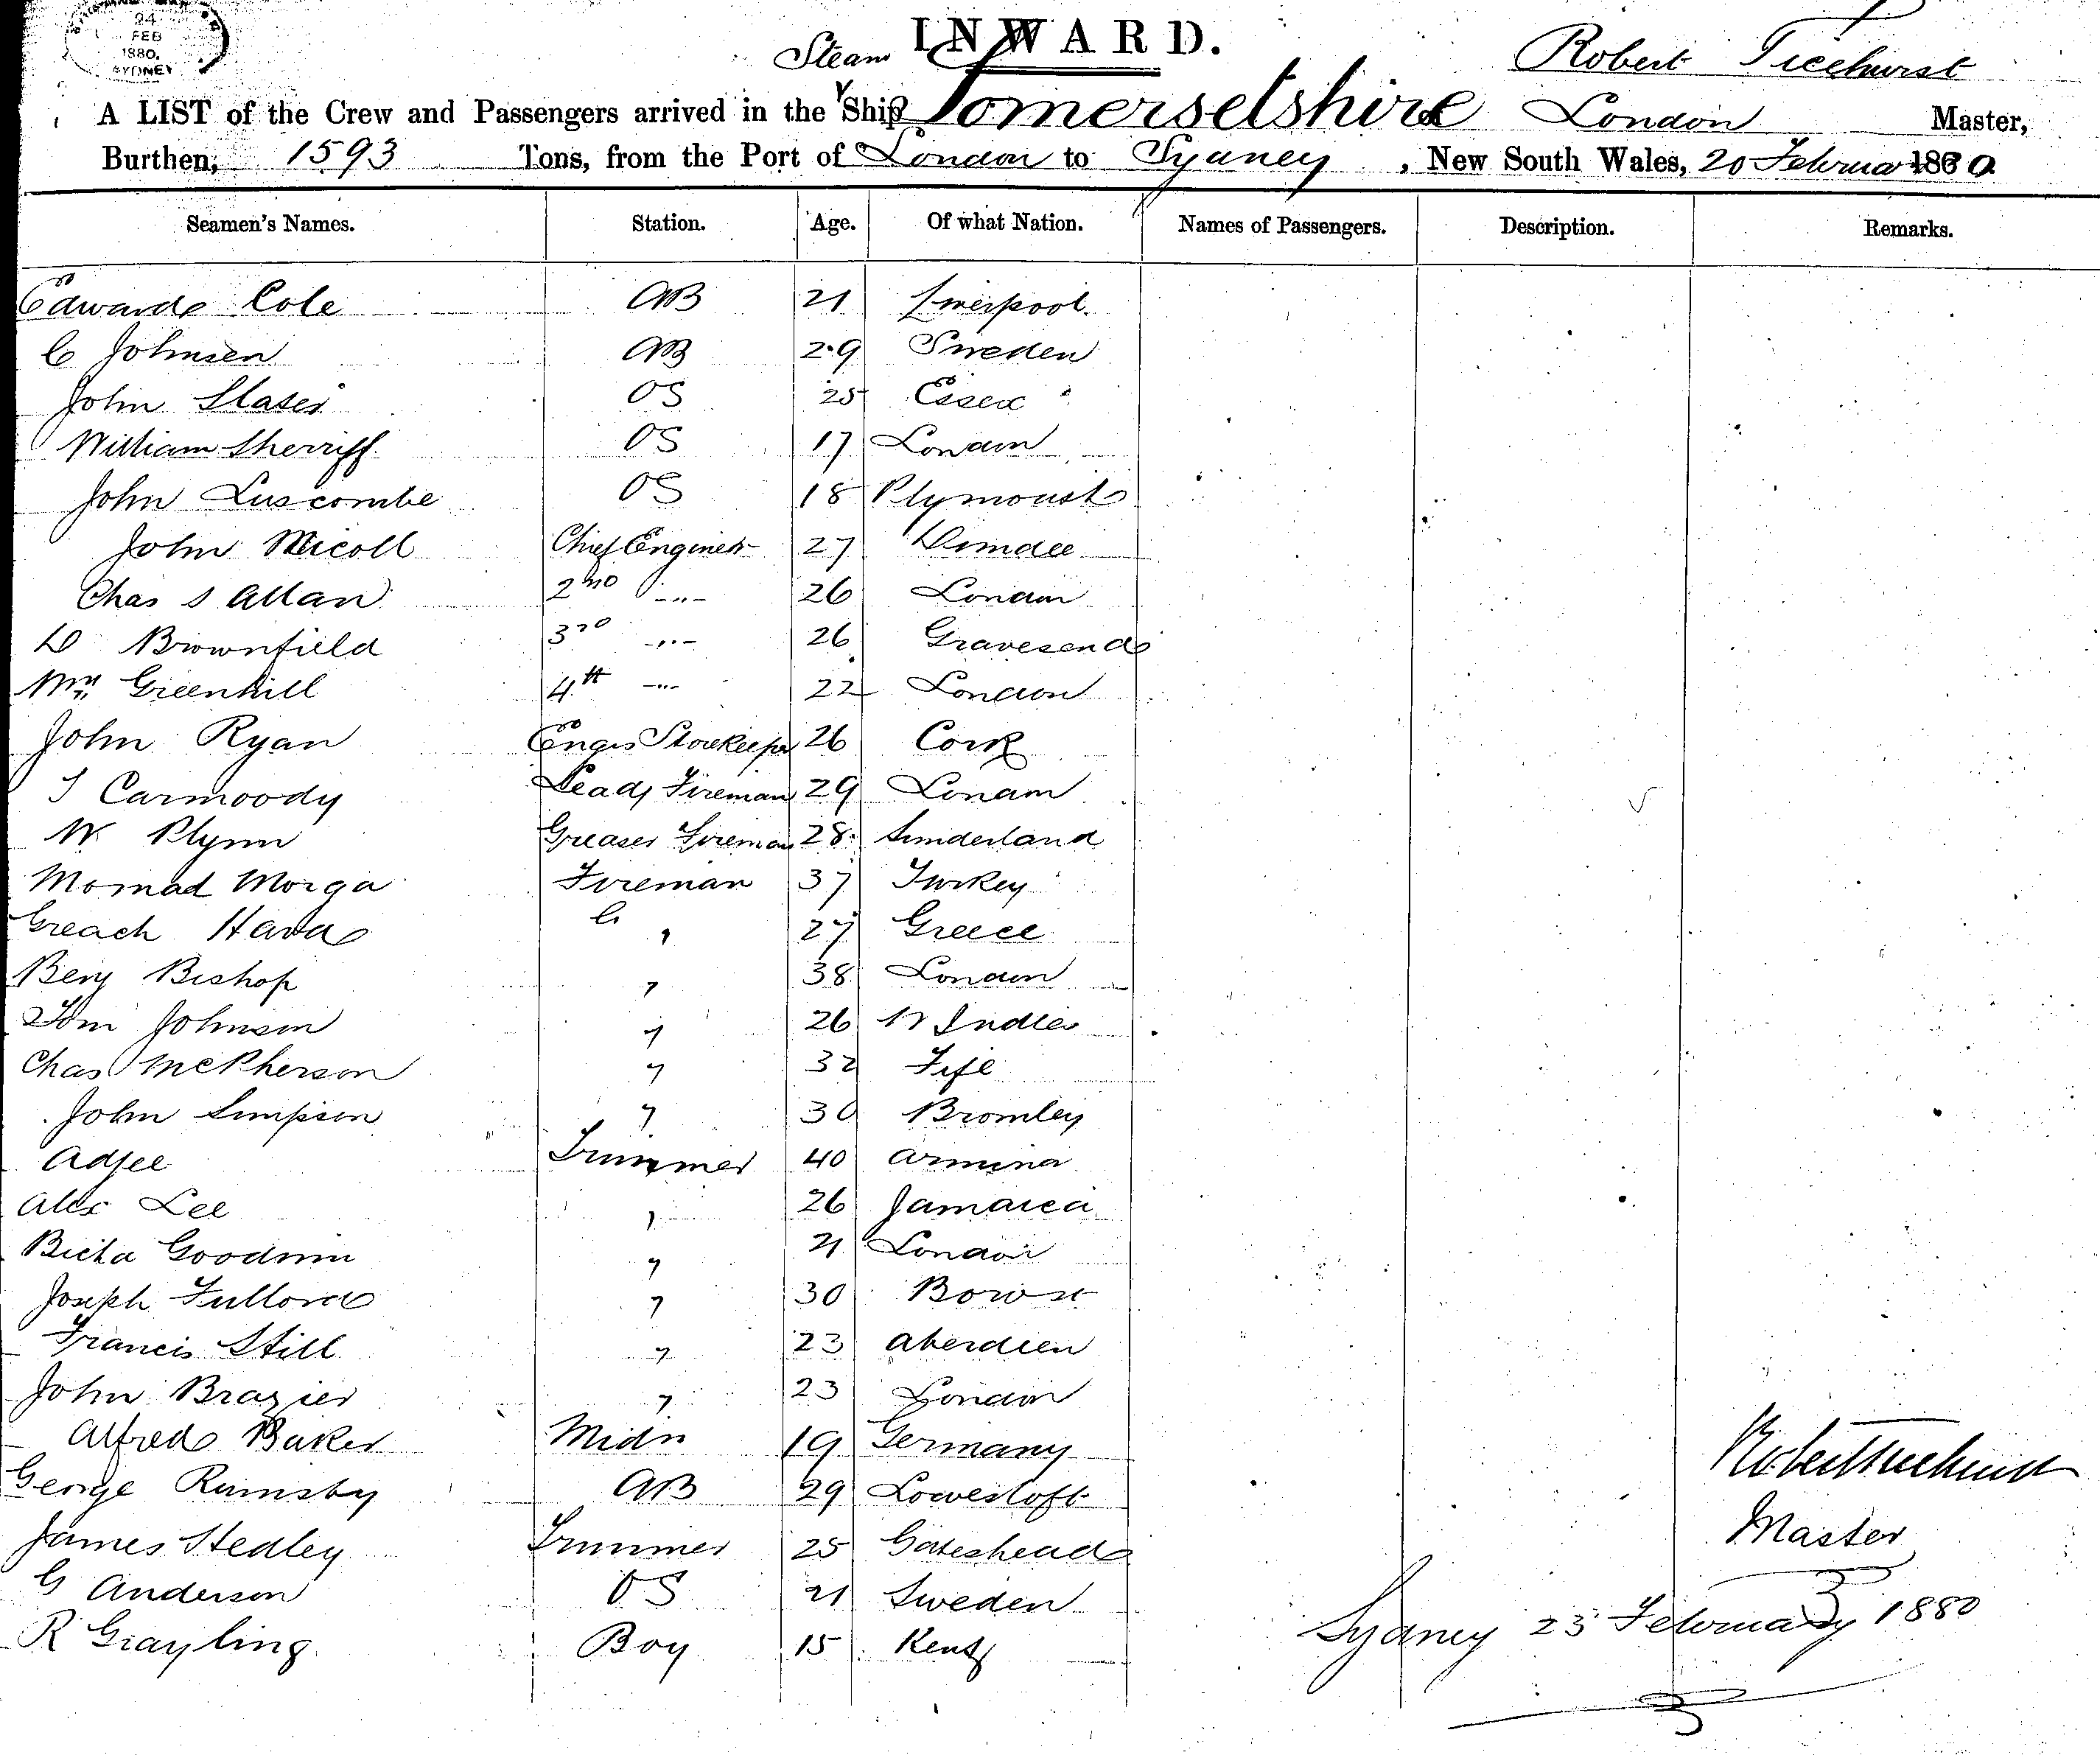 24
FEB
1880.
SYDNEY
INWARD.
Steam
Robert Ticehurst
A LIST of the Crew and Passengers arrived in the Ship Somersetshire London Master,
Burthen, 1593 Tons, from the Port of London to Sydney, New South Wales, 20 February 1880
Seamen's Names. Station. Age. Of what Nation. Names of Passengers. Description. Remarks.
Edward Cole AB 21 Liverpool.
C Johnsen AB 29 Sweden
John Slater OS 25 Essex
William Sherriff OS 17 London
John Luscombe OS 18 Plymouth
John Nicoll Chief Engineer 27 Dundee
Chas S Allan 2nd -"- 26 London
D Brownfield 3rd -"- 26 Gravesend
Wm Greenhill 4th -"- 22 London
John Ryan Engrs Storekeeper 26 Cork
T Carmoody Leadg Fireman 29 London
W Plynn Greaser Fireman 28 Sunderland
Momad Morga Fireman 37 Turkey
Greach Hava " 27 Greece
Benj Bishop " 38 London
Tom Johnson " 26 W Indies
Chas McPherson " 32 Fife
John Simpson " 30 Bromley
Adjee Trimmer 40 Armina
Alex Lee " 26 Jamaica
Goodwin " 21 London
Joseph Fullord " 30 Bow
Francis Still " 23 Aberdeen
John Brazier " 23 London
Alfred Baker Midn 19 Germany
George Rumsby AB 29 Lowestoft
James Hedley Trimmer 25 Gateshead
G Anderson OS 21 Sweden
R Grayling Boy 15 Kent
Robert Ticehurst
Master
Sydney 23 February 1880